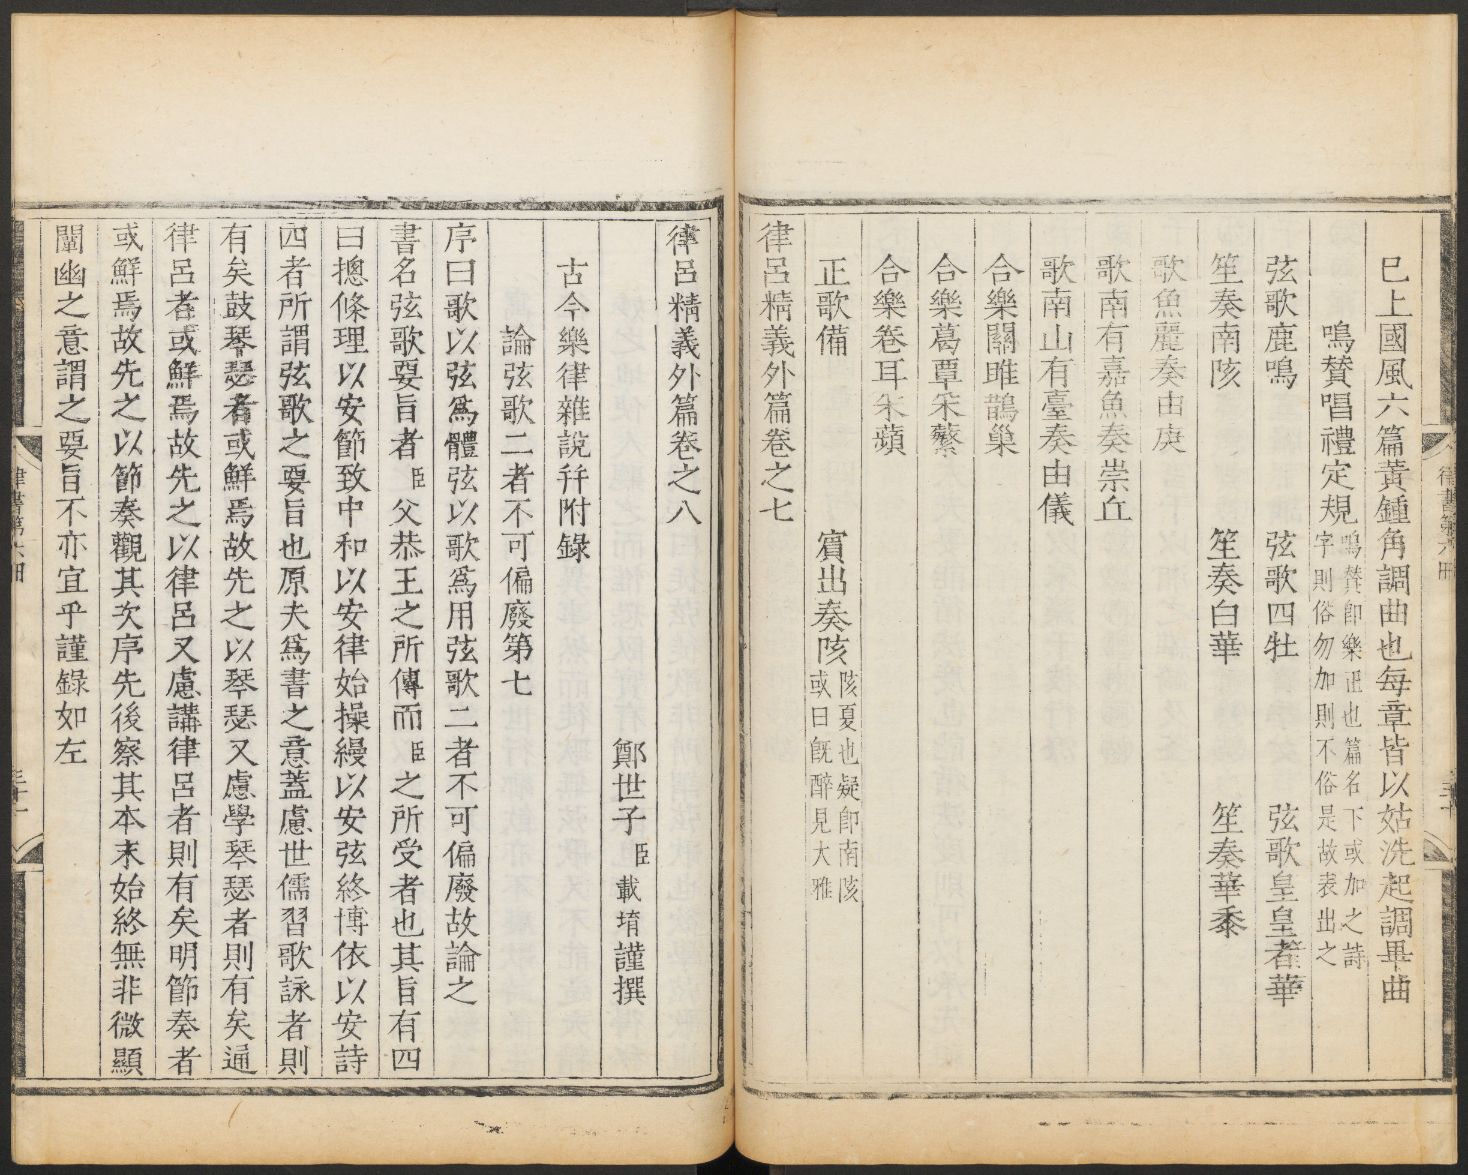 已上國風六篇黃鍾角調曲也每章皆以姑洗起調畢曲
鳴贊唱禮定規
鳴贊卽樂正也篇名下或加之詩
字則俗勿加則不俗是故表出之
弦歌鹿鳴 弦歌四牡 弦歌皇皇者華
笙奏南陔 笙奏白華 笙奏華黍
歌魚麗奏由庚
歌南有嘉魚奏崇丘
歌南山有臺奏由儀
合樂關雎鵲巢
合樂葛覃采蘩
合樂卷耳采蘋
正歌備 賓出奏陔
陔夏也疑卽南陔
或曰旣醉見大雅
律呂精義外篇卷之七
律書第六冊
三十
律呂精義外篇卷之八
鄭世子臣載堉謹撰
古今樂律雜說幷附錄
論弦歌二者不可偏廢第七
序曰歌以弦爲體弦以歌爲用弦歌二者不可偏廢故論之
書名弦歌要旨者臣父恭王之所傳而臣之所受者也其旨有四
曰摠條理以安節致中和以安律始操縵以安弦終博依以安詩
四者所謂弦歌之要旨也原夫爲書之意蓋慮世儒習歌詠者則
有矣鼓琴瑟者或鮮焉故先之以琴瑟又慮學琴瑟者則有矣通
律呂者或鮮焉故先之以律呂又慮講律呂者則有矣明節奏者
或鮮焉故先之以節奏觀其次序先後察其本末始終無非微顯
闡幽之意謂之要旨不亦宜乎謹錄如左
律書第六冊
三十一